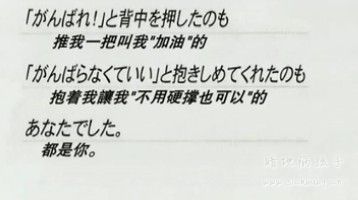 「がんばれ！」と背中を押したのも
推我一把叫我"加油"的
「がんばらなくていい」と抱きしめてくれたのも
抱着我讓我"不用硬撐也可以"的
あなたでした。
都是你。